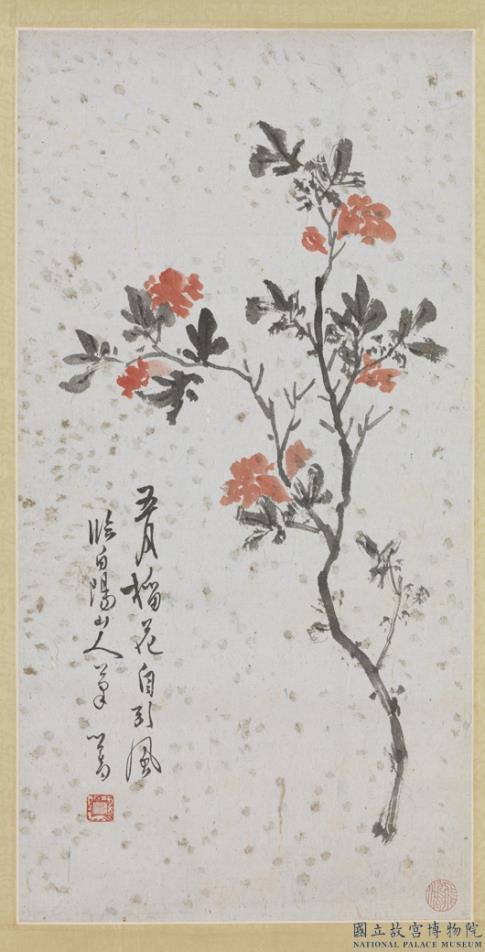 五月榴花自引風
臨白陽山人筆 心畬
國立故宮博物院
NATIONAL PALACE MUSEUM